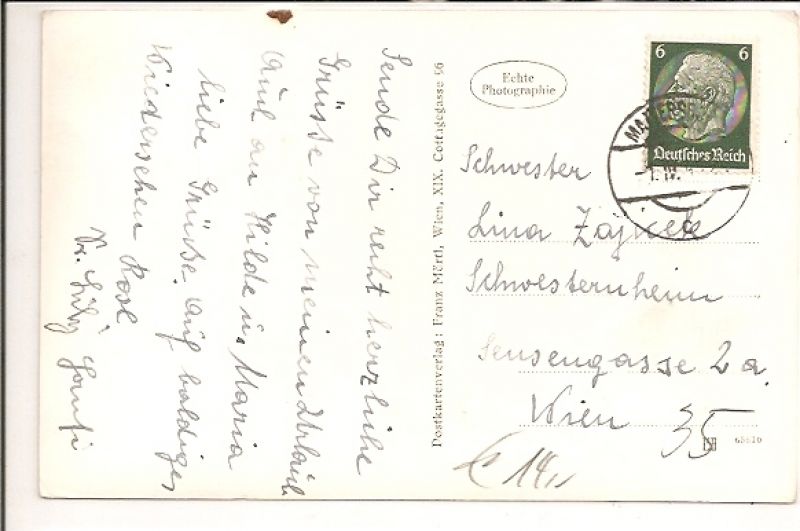 Sende Dir recht herzliche
Grüsse von meinem Urlaub
Auch an Hilde u. Maria
liebe Grüße. Auf baldiges
Wiedersehen Rosl
Postkartenverlag: Franz Mörtl, Wien, XIX. Cottagegasse 56
Echte
Photographie
6 6
Deutsches Reich
Schwester
Lina Zajicek
Schwesternheim
Sensengasse 2a.
Wien
35